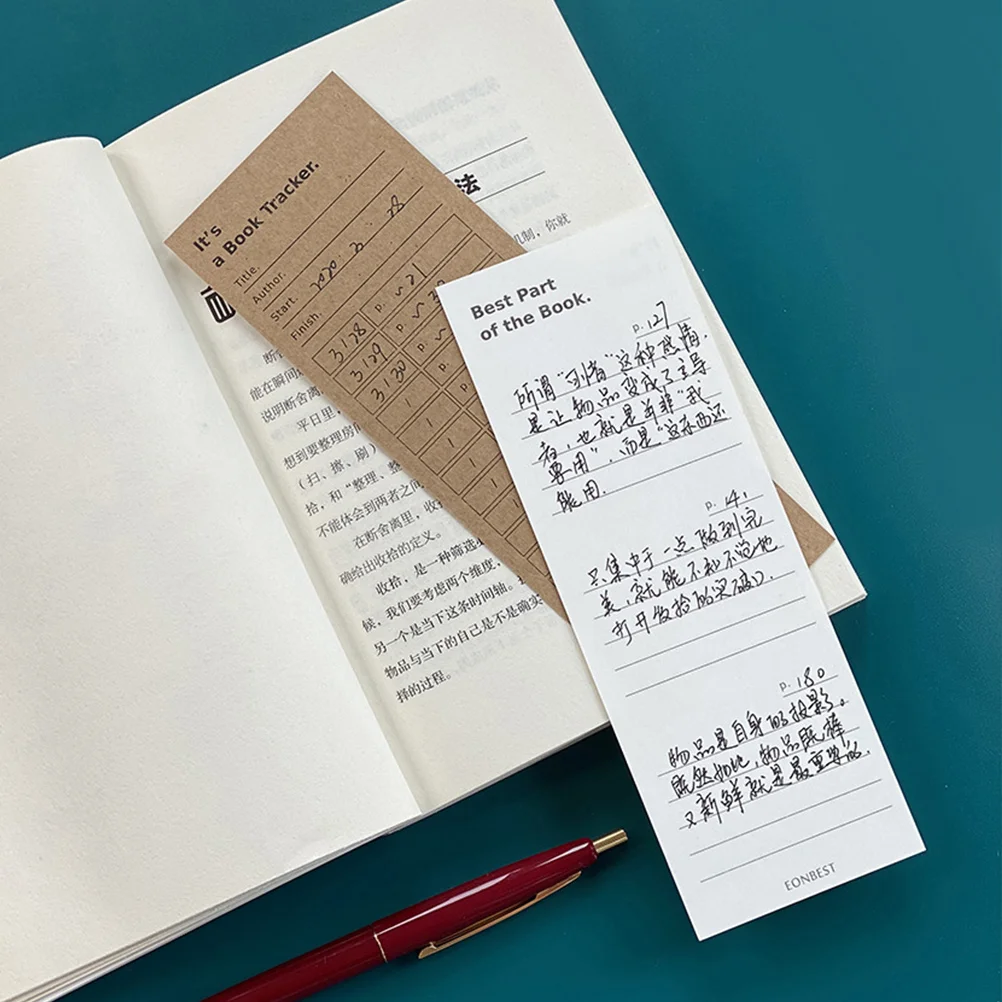 It's
a Book Tracker.
Title.
Author.
Start. 2020. 2. 28
Finish.
3128 p. ~ 21
3129 p. ~
3130 p.
Best Part
of the Book.
p. 127
所谓“可惜”这种感情.
是让物品变成了主导
者，也就是并非“我
要用”，而是“这东西还
能用.
p. 141
只集中于一点做到完
美，就能不知不觉地
打开收拾的突破口.
p. 180
物品是自身的投影。
既然如此，物品既棒
又新鲜就是最重要的.
EONBEST
法
机制，你就
断舍
能在瞬间
说明断舍离
平日里，
想到要整理房间
（扫、擦、刷）
拾，和“整理、整
不能体会到两者之间
在断舍离里，收
确给出收拾的定义。
收拾，是一种筛选
候，我们要考虑两个维度，
另一个是当下这条时间轴。
物品与当下的自己是不是确实
择的过程。